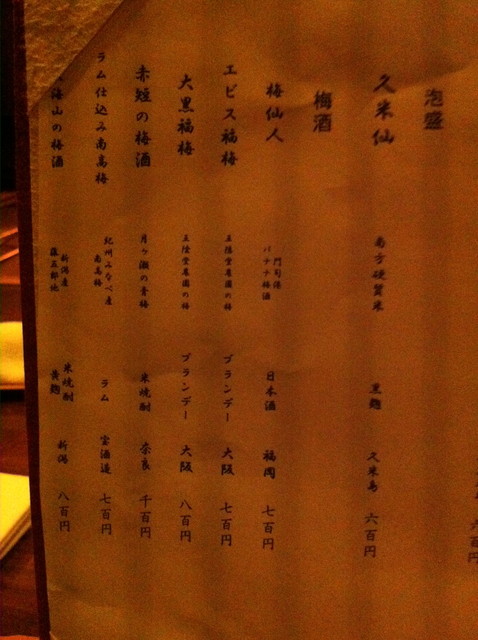 六百円
泡盛
久米仙 南方硬質米 黒麹 久米島 六百円
梅酒
梅仙人 門司港 バナナ梅酒 日本酒 福岡 七百円
エビス福梅 五陸堂農園の梅 ブランデー 大阪 七百円
大黒福梅 五陸堂農園の梅 ブランデー 大阪 八百円
赤短の梅酒 月ヶ瀬の青梅 米焼酎 奈良 千百円
ラム仕込み南高梅 紀州みなべ産 南高梅 ラム 宝酒造 七百円
海山の梅酒 新潟産 藤五郎梅 米焼酎 黄麹 新潟 八百円